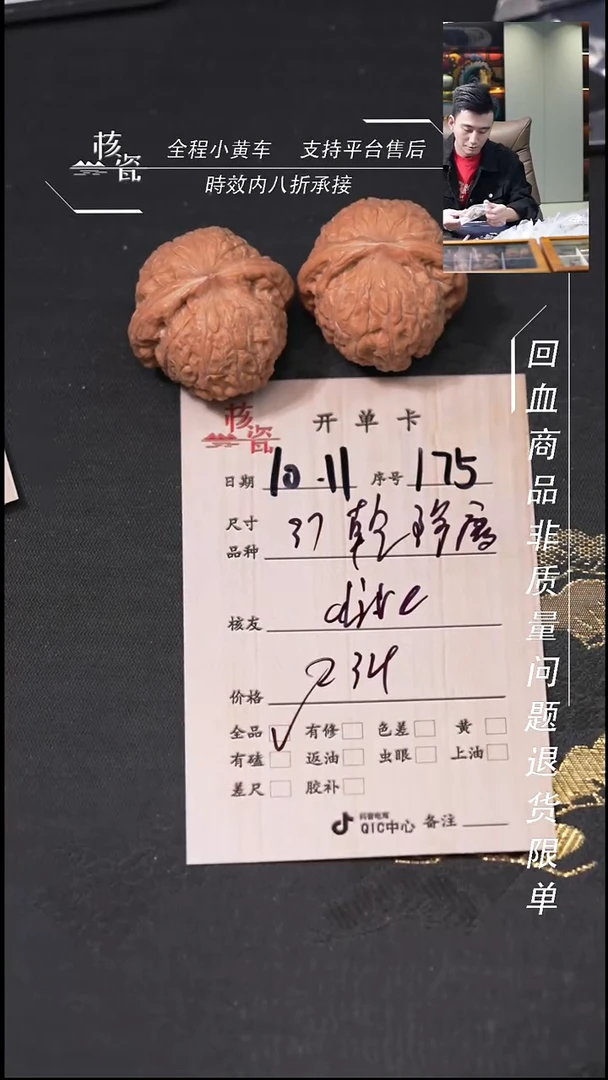 核瓷
全程小黄车 支持平台售后
時效内八折承接
回血商品非质量问题退货限单
核瓷
开单卡
日期 10.11 序号 175
尺寸
品种 37 乾
核友
价格 234
全品 有修 色差 黄
有磕 返油 虫眼 上油
差尺 胶补
抖音电商
QIC中心 备注